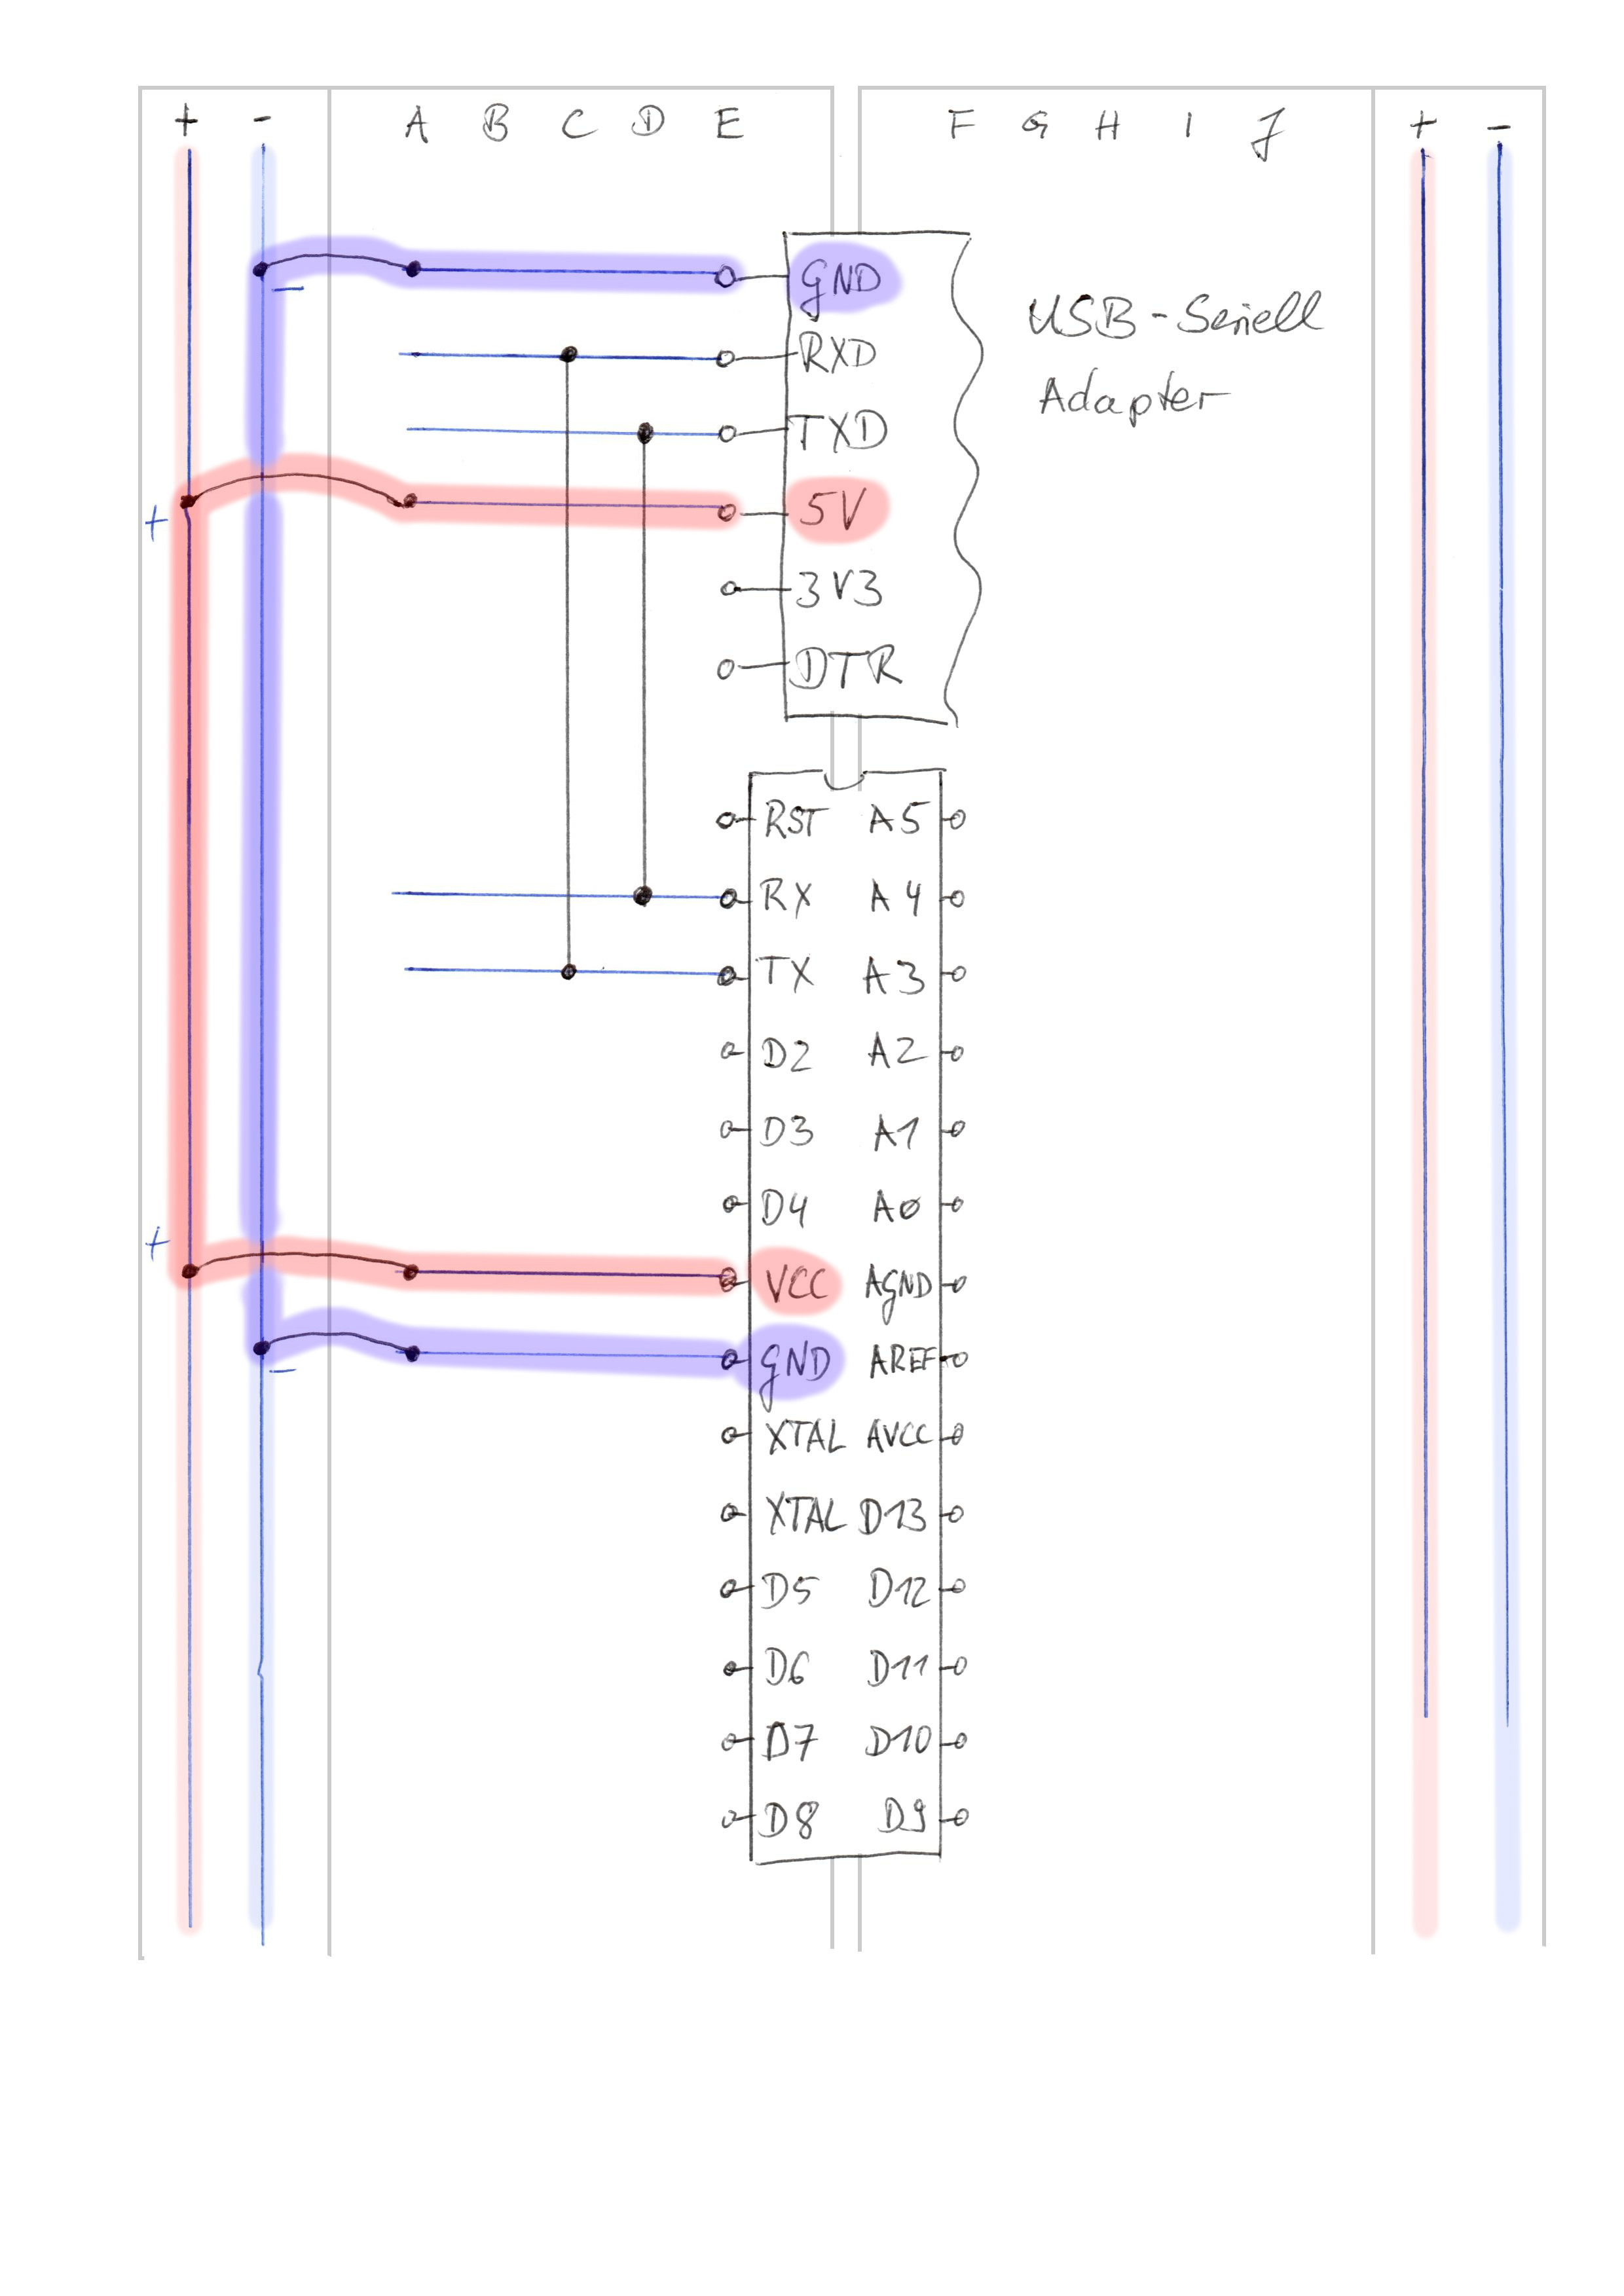 + - A B C D E F G H I J + -
GND
-
RXD
TXD
5V
+
3V3
DTR
USB-Seriell
Adapter
RST A5
RX A4
TX A3
D2 A2
D3 A1
D4 A0
+
VCC AGND
GND AREF
-
XTAL AVCC
XTAL D13
D5 D12
D6 D11
D7 D10
D8 D9